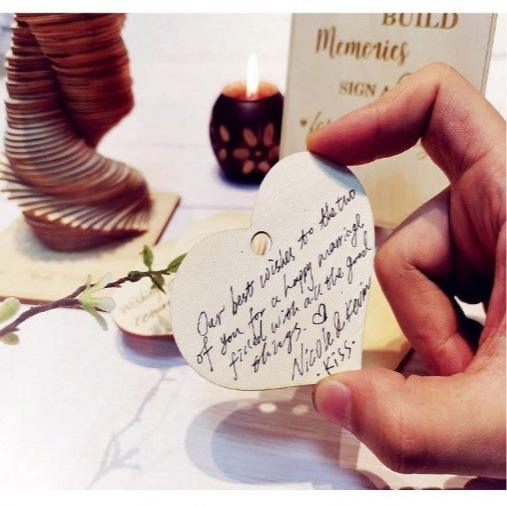 BUILD
Memories
SIGN A
Our best wishes to the two
of you for a happy marriagh
filled with all the good
things. ♡
Nicole & Kevin
· Kiss ·